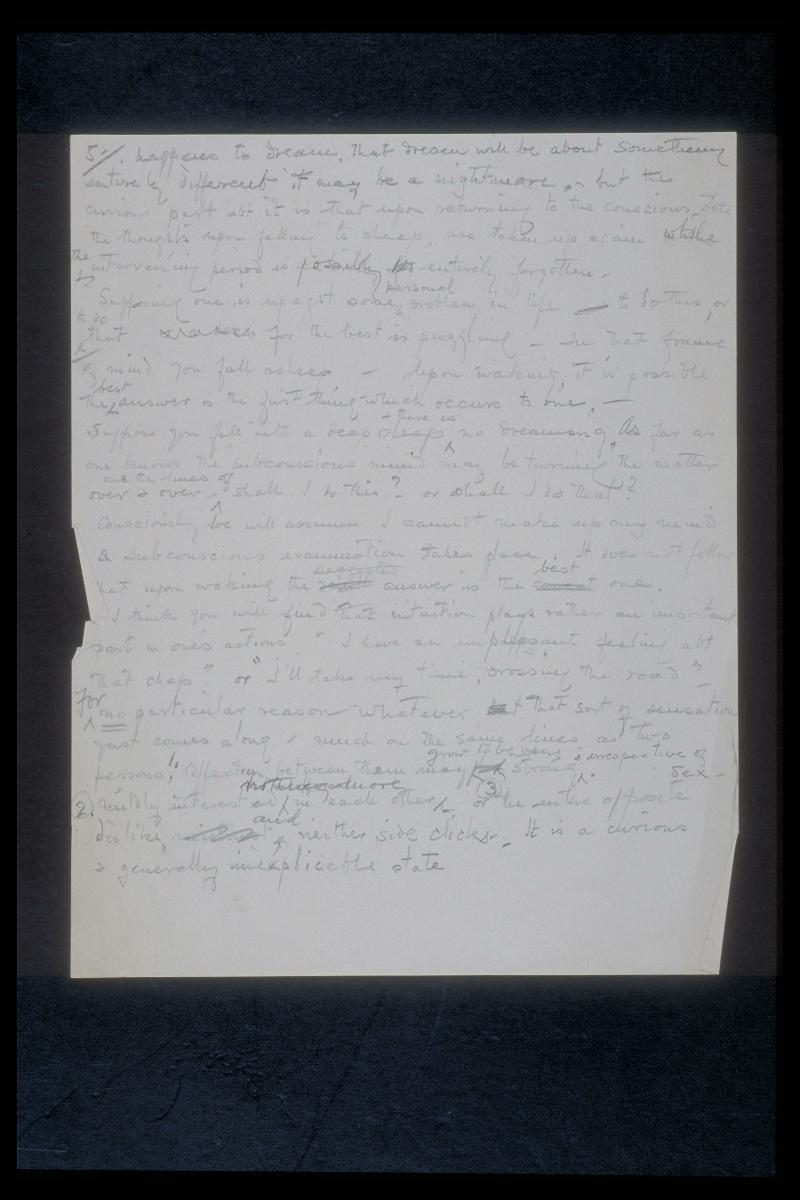 5/. happens to dream, that dream will be about something
entirely different it may be a nightmare, but the
curious part abt it is that upon returning to the conscious state
the thoughts upon falling to sleep, are taken up again while
the intervening period is possibly entirely forgotten.
personal
Supposing one is up agst some problem in life — to do this, or
to do
that for the best is puzzling — In that frame
of mind you fall asleep — Upon waking, it is possible
best
the answer is the first thing which occurs to one. —
there is
Suppose you fall into a deep sleep no dreaming, As far as
one knows the subconscious mind may be turning the matter
on the lines of
over & over, shall I do this? or shall I do that?
Consciously we will assume I cannot make up my mind
a subconscious examination takes place. It does not follow
suggested best
that upon waking the result answer is the correct one.
I think you will find that intuition plays rather an important
part in one's actions. "I have an unpleasant feeling abt
that chap" or "I'll take my time, crossing the road" —
For
no particular reason whatever, but that sort of sensation
just comes along, much on the same lines as two
grow to be very irrespective of
persons! Affection between them may strong sex —
nothing more 3
2. mildly interested in each other, or the entire opposite
and
dislike, neither side clicks. It is a curious
& generally inexplicable state